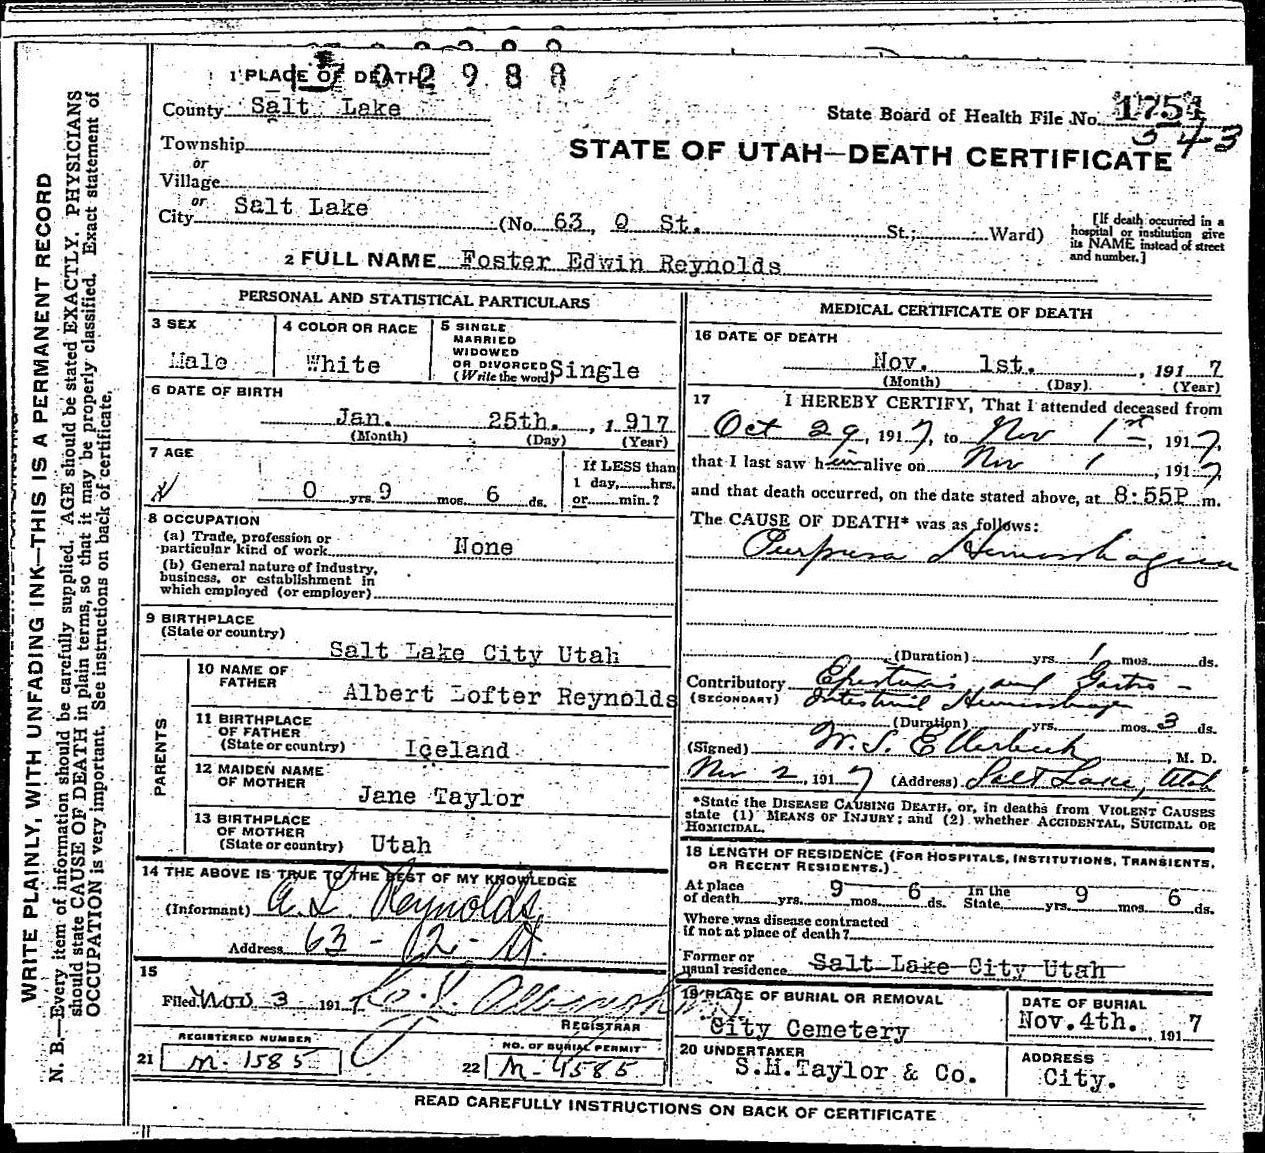 1 PLACE OF DEATH
1 5 0 2 9 8 8
County Salt Lake
State Board of Health File No. 1751
343
Township
or
Village
or
City Salt Lake (No. 63, O St. St.; Ward)
STATE OF UTAH—DEATH CERTIFICATE
[If death occurred in a
hospital or institution give
its NAME instead of street
and number.]
2 FULL NAME Foster Edwin Reynolds
PERSONAL AND STATISTICAL PARTICULARS
3 SEX
Male
4 COLOR OR RACE
White
5 SINGLE
MARRIED
WIDOWED
OR DIVORCED
(Write the word) Single
6 DATE OF BIRTH
Jan. 25th. , 1 917
(Month) (Day) (Year)
7 AGE
0 yrs. 9 mos. 6 ds.
If LESS than
1 day, hrs.
or min.?
8 OCCUPATION
(a) Trade, profession or
particular kind of work None
(b) General nature of industry,
business, or establishment in
which employed (or employer)
9 BIRTHPLACE
(State or country)
Salt Lake City Utah
PARENTS
10 NAME OF
FATHER
Albert Lofter Reynolds
11 BIRTHPLACE
OF FATHER
(State or country) Iceland
12 MAIDEN NAME
OF MOTHER
Jane Taylor
13 BIRTHPLACE
OF MOTHER
(State or country) Utah
14 THE ABOVE IS TRUE TO THE BEST OF MY KNOWLEDGE
(Informant) A. L. Reynolds,
Address 63 - O - St.
15
Filed Nov 3 1917
REGISTRAR
REGISTERED NUMBER
21 M-1585
NO. OF BURIAL PERMIT
22 M-4585
MEDICAL CERTIFICATE OF DEATH
16 DATE OF DEATH
Nov. 1st. , 191 7
(Month) (Day) (Year)
17 I HEREBY CERTIFY, That I attended deceased from
Oct 29, 1917, to Nov 1st, 1917,
that I last saw him alive on Nov 1, 1917,
and that death occurred, on the date stated above, at 8:55P m.
The CAUSE OF DEATH* was as follows:
Purpura Hemorrhagica
(Duration) yrs. 1 mos. ds.
Contributory Epistaxis and Gastro-
(SECONDARY) Intestinal Hemorrhage
(Duration) yrs. mos. 3 ds.
(Signed) W. S. Ellerbeck, M. D.
Nov 2, 1917 (Address) Salt Lake, Utah
*State the DISEASE CAUSING DEATH, or, in deaths from VIOLENT CAUSES
state (1) MEANS OF INJURY; and (2) whether ACCIDENTAL, SUICIDAL OR
HOMICIDAL.
18 LENGTH OF RESIDENCE (FOR HOSPITALS, INSTITUTIONS, TRANSIENTS,
OR RECENT RESIDENTS.)
At place
of death yrs. 9 mos. 6 ds. In the
State yrs. 9 mos. 6 ds.
Where was disease contracted
if not at place of death?
Former or
usual residence Salt Lake City Utah
19 PLACE OF BURIAL OR REMOVAL
City Cemetery
DATE OF BURIAL
Nov. 4th. , 191 7
20 UNDERTAKER
S.H.Taylor & Co.
ADDRESS
City.
READ CAREFULLY INSTRUCTIONS ON BACK OF CERTIFICATE
WRITE PLAINLY, WITH UNFADING INK—THIS IS A PERMANENT RECORD
N. B.—Every item of information should be carefully supplied. AGE should be stated EXACTLY. PHYSICIANS
should state CAUSE OF DEATH in plain terms, so that it may be properly classified. Exact statement of
OCCUPATION is very important. See instructions on back of certificate.